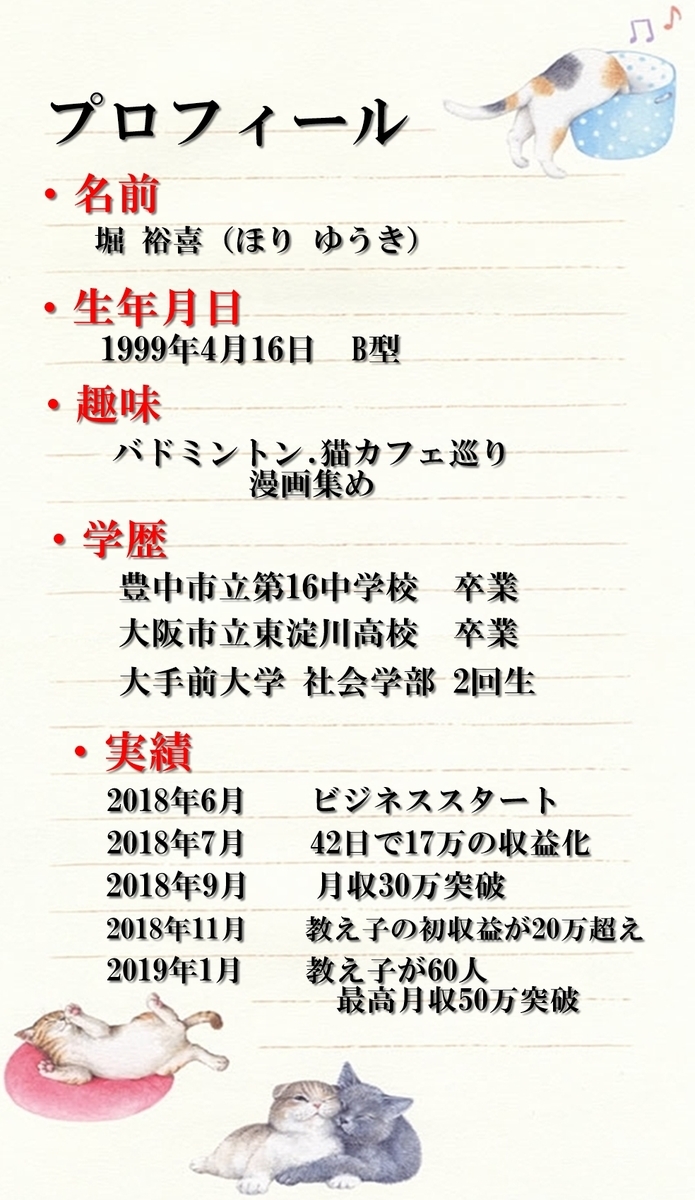 プロフィール
・名前
堀 裕喜（ほり ゆうき）
・生年月日
1999年4月16日　B型
・趣味
バドミントン.猫カフェ巡り
漫画集め
・学歴
豊中市立第16中学校　卒業
大阪市立東淀川高校　卒業
大手前大学 社会学部 2回生
・実績
2018年6月　ビジネススタート
2018年7月　42日で17万の収益化
2018年9月　月収30万突破
2018年11月　教え子の初収益が20万超え
2019年1月　教え子が60人
最高月収50万突破